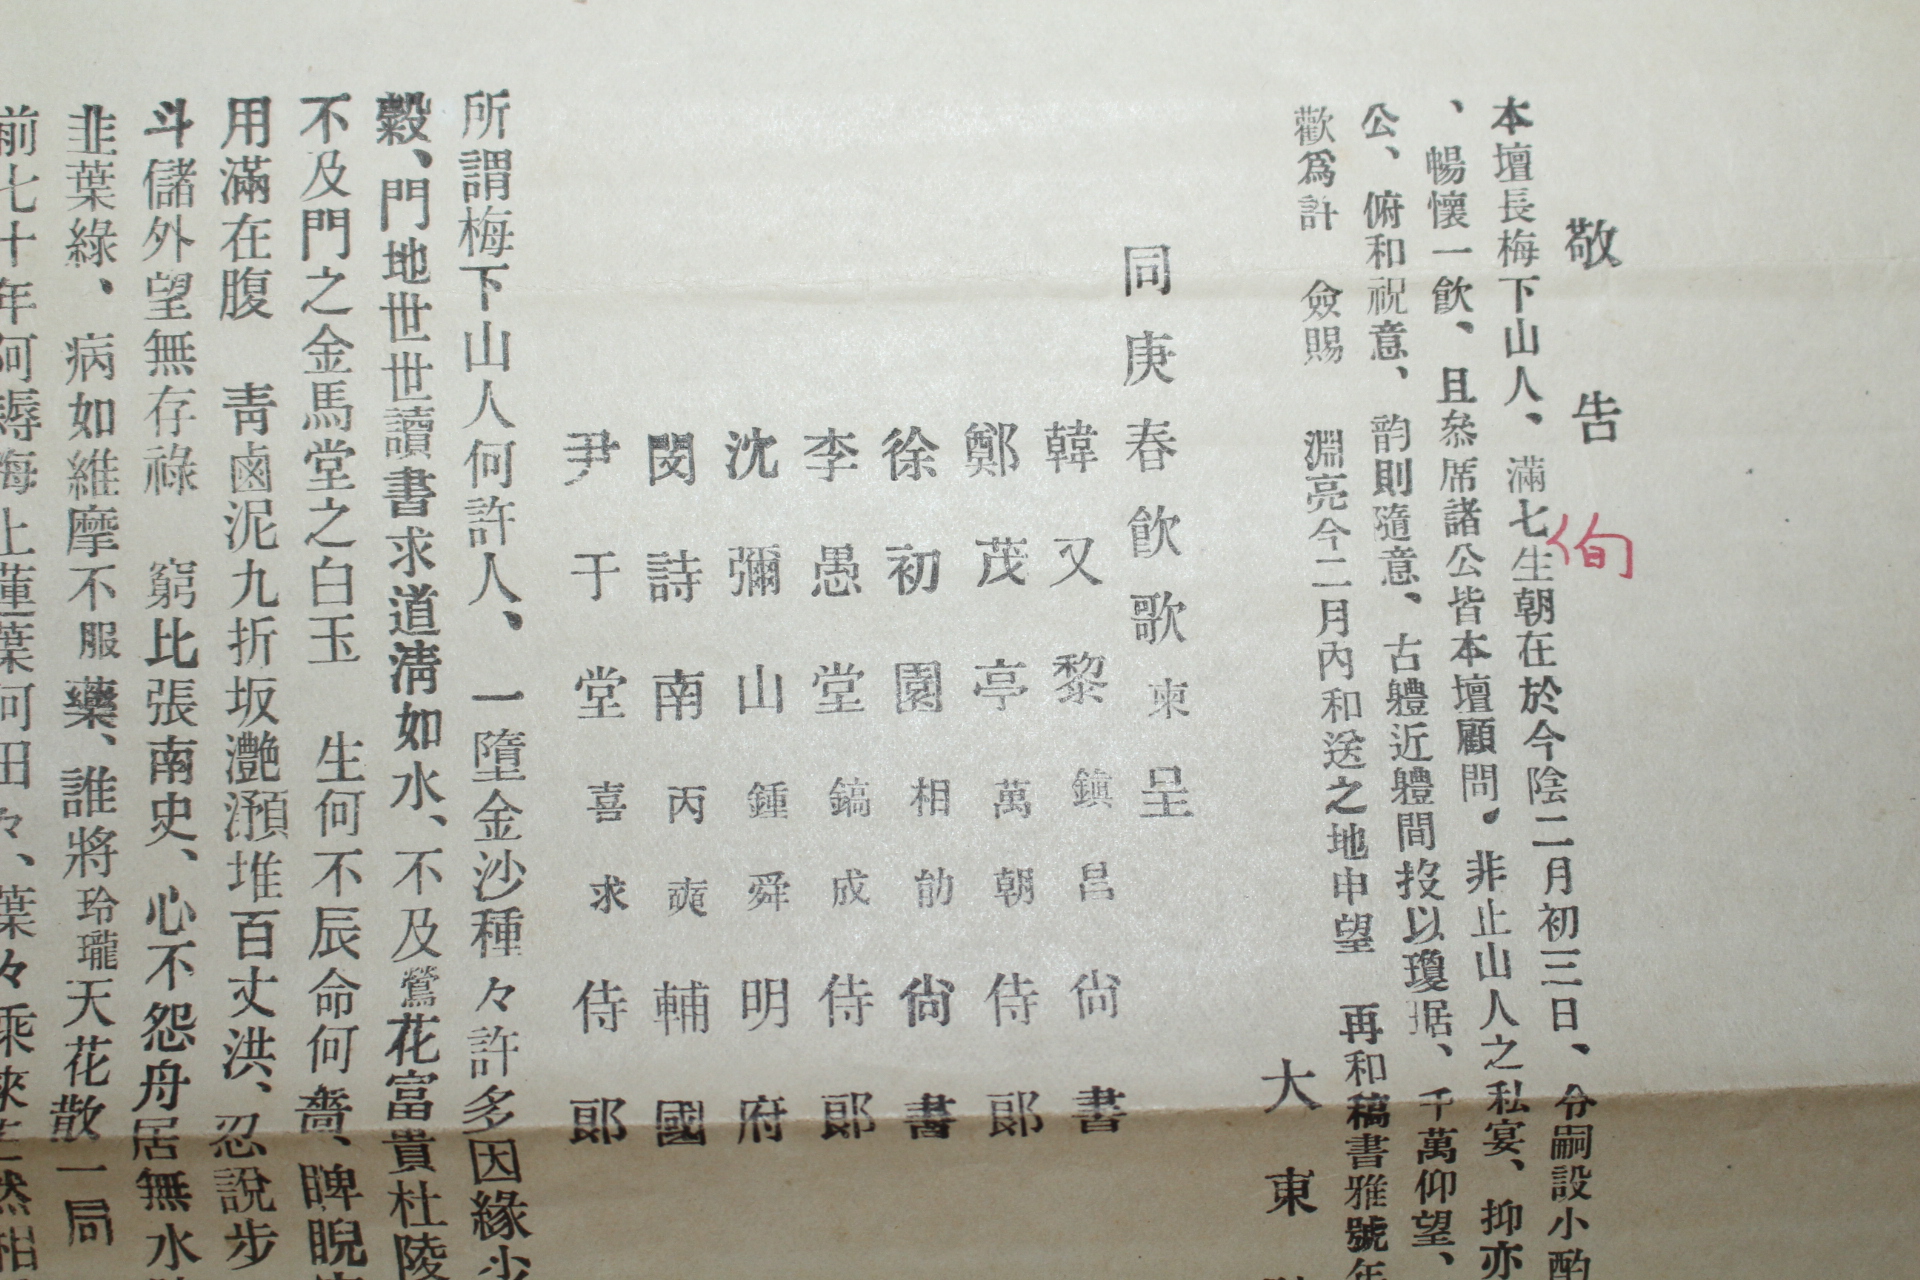 敬告
本壇長梅下山人、滿七生朝在於今陰二月初三日、令嗣設小酌
、暢懷一飮、且叅席諸公皆本壇顧問、非止山人之私宴、抑亦
公、俯和祝意、韵則隨意、古軆近軆間投以瓊琚、千萬仰望、
歡爲計 僉賜 淵亮今二月內和送之地申望 再和稿書雅號年
大東
同庚春飮歌柬呈
韓又黎鎭昌尙書
鄭茂亭萬朝侍郞
徐初園相勛尙書
李愚堂鎬成侍郞
沈彌山鍾舜明府
閔詩南丙奭輔國
尹于堂喜求侍郞
所謂梅下山人何許人、一墮金沙種々許多因緣少
穀、門地世世讀書求道淸如水、不及鶯花富貴杜陵
不及門之金馬堂之白玉 生何不辰命何奇、睥睨
用滿在腹 靑鹵泥九折坂灔澦堆百丈洪、忍說步
斗儲外望無存祿 窮比張南史、心不怨舟居無水
韭葉綠、病如維摩不服藥、誰將玲瓏天花散一局
前七十年何 海上蓮葉何田々、葉々乘來 然相